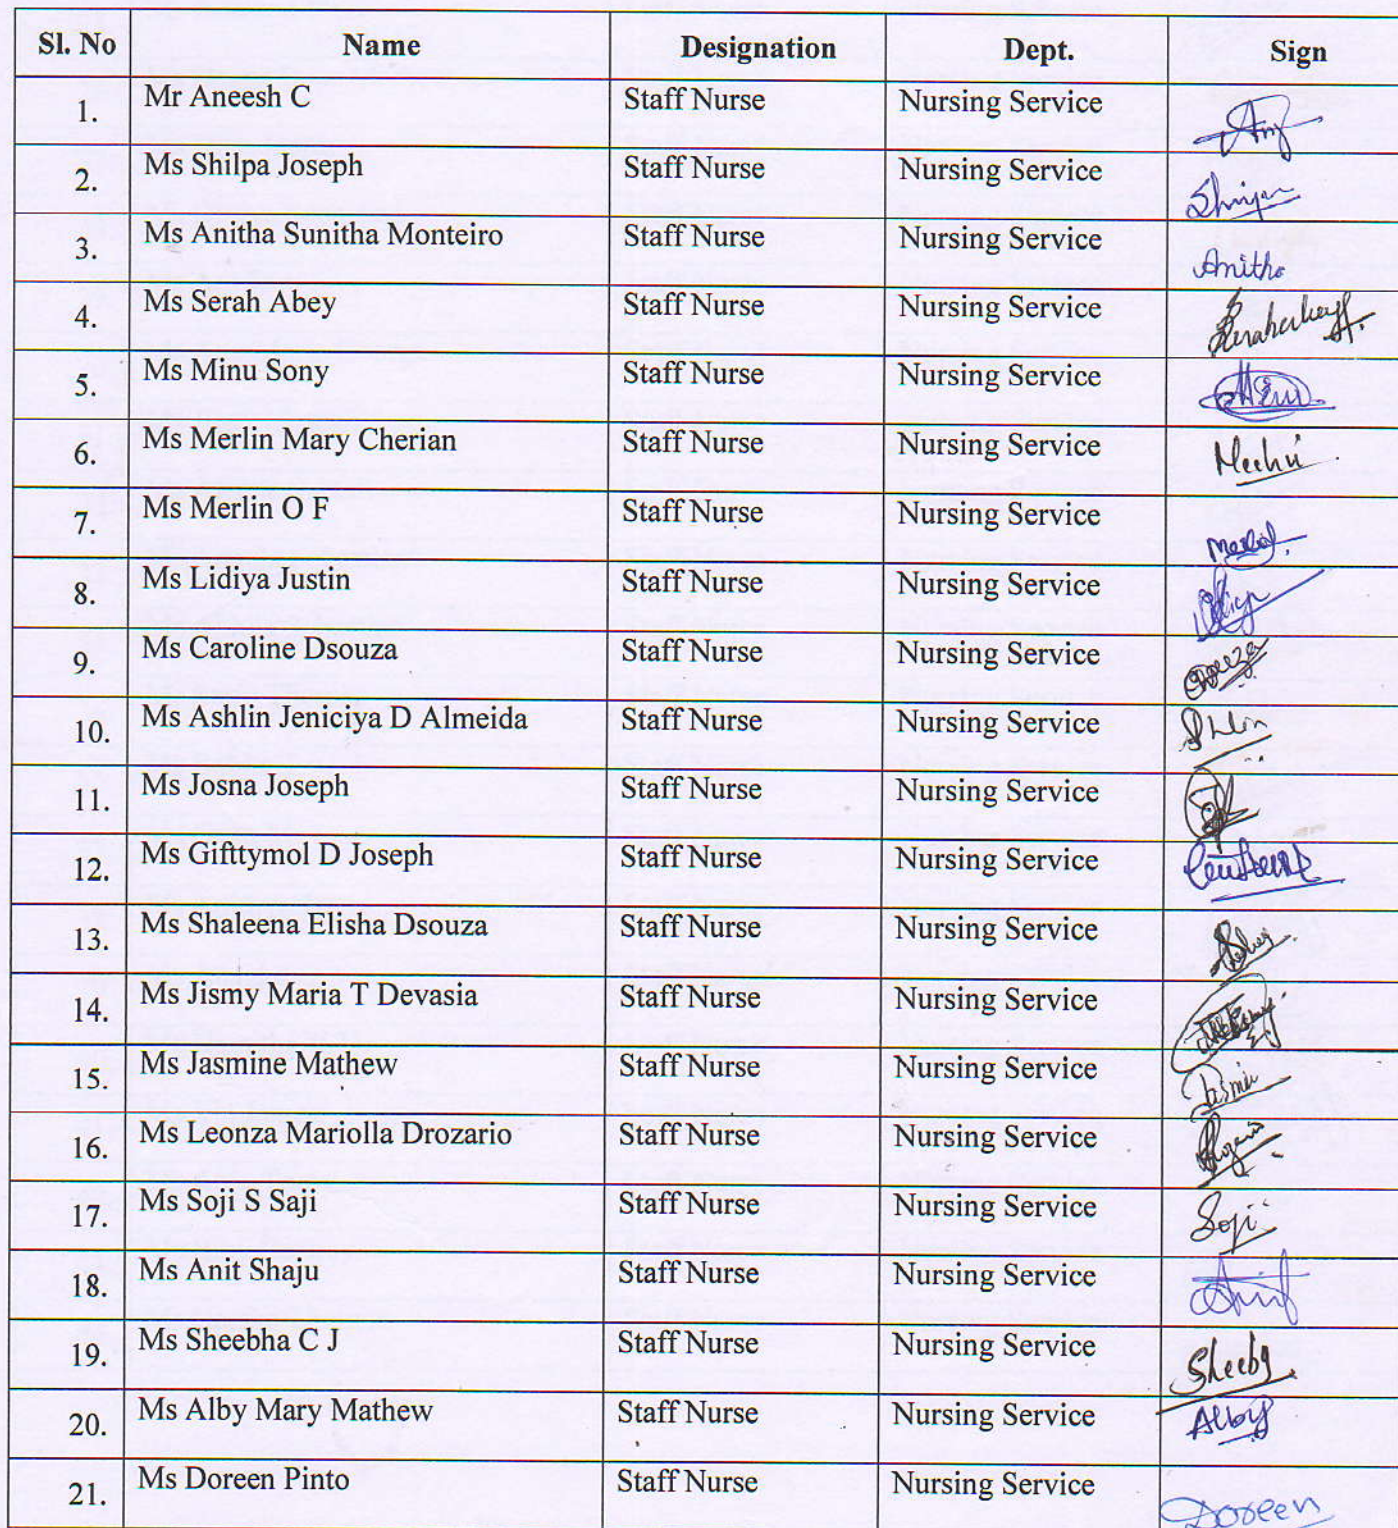 Sl. No Name Designation Dept. Sign
1. Mr Aneesh C Staff Nurse Nursing Service
2. Ms Shilpa Joseph Staff Nurse Nursing Service
3. Ms Anitha Sunitha Monteiro Staff Nurse Nursing Service Anitha
4. Ms Serah Abey Staff Nurse Nursing Service
5. Ms Minu Sony Staff Nurse Nursing Service
6. Ms Merlin Mary Cherian Staff Nurse Nursing Service
7. Ms Merlin O F Staff Nurse Nursing Service
8. Ms Lidiya Justin Staff Nurse Nursing Service
9. Ms Caroline Dsouza Staff Nurse Nursing Service
10. Ms Ashlin Jeniciya D Almeida Staff Nurse Nursing Service
11. Ms Josna Joseph Staff Nurse Nursing Service
12. Ms Gifttymol D Joseph Staff Nurse Nursing Service
13. Ms Shaleena Elisha Dsouza Staff Nurse Nursing Service
14. Ms Jismy Maria T Devasia Staff Nurse Nursing Service
15. Ms Jasmine Mathew Staff Nurse Nursing Service
16. Ms Leonza Mariolla Drozario Staff Nurse Nursing Service
17. Ms Soji S Saji Staff Nurse Nursing Service Soji
18. Ms Anit Shaju Staff Nurse Nursing Service
19. Ms Sheebha C J Staff Nurse Nursing Service Sheeba
20. Ms Alby Mary Mathew Staff Nurse Nursing Service Alby
21. Ms Doreen Pinto Staff Nurse Nursing Service Doreen